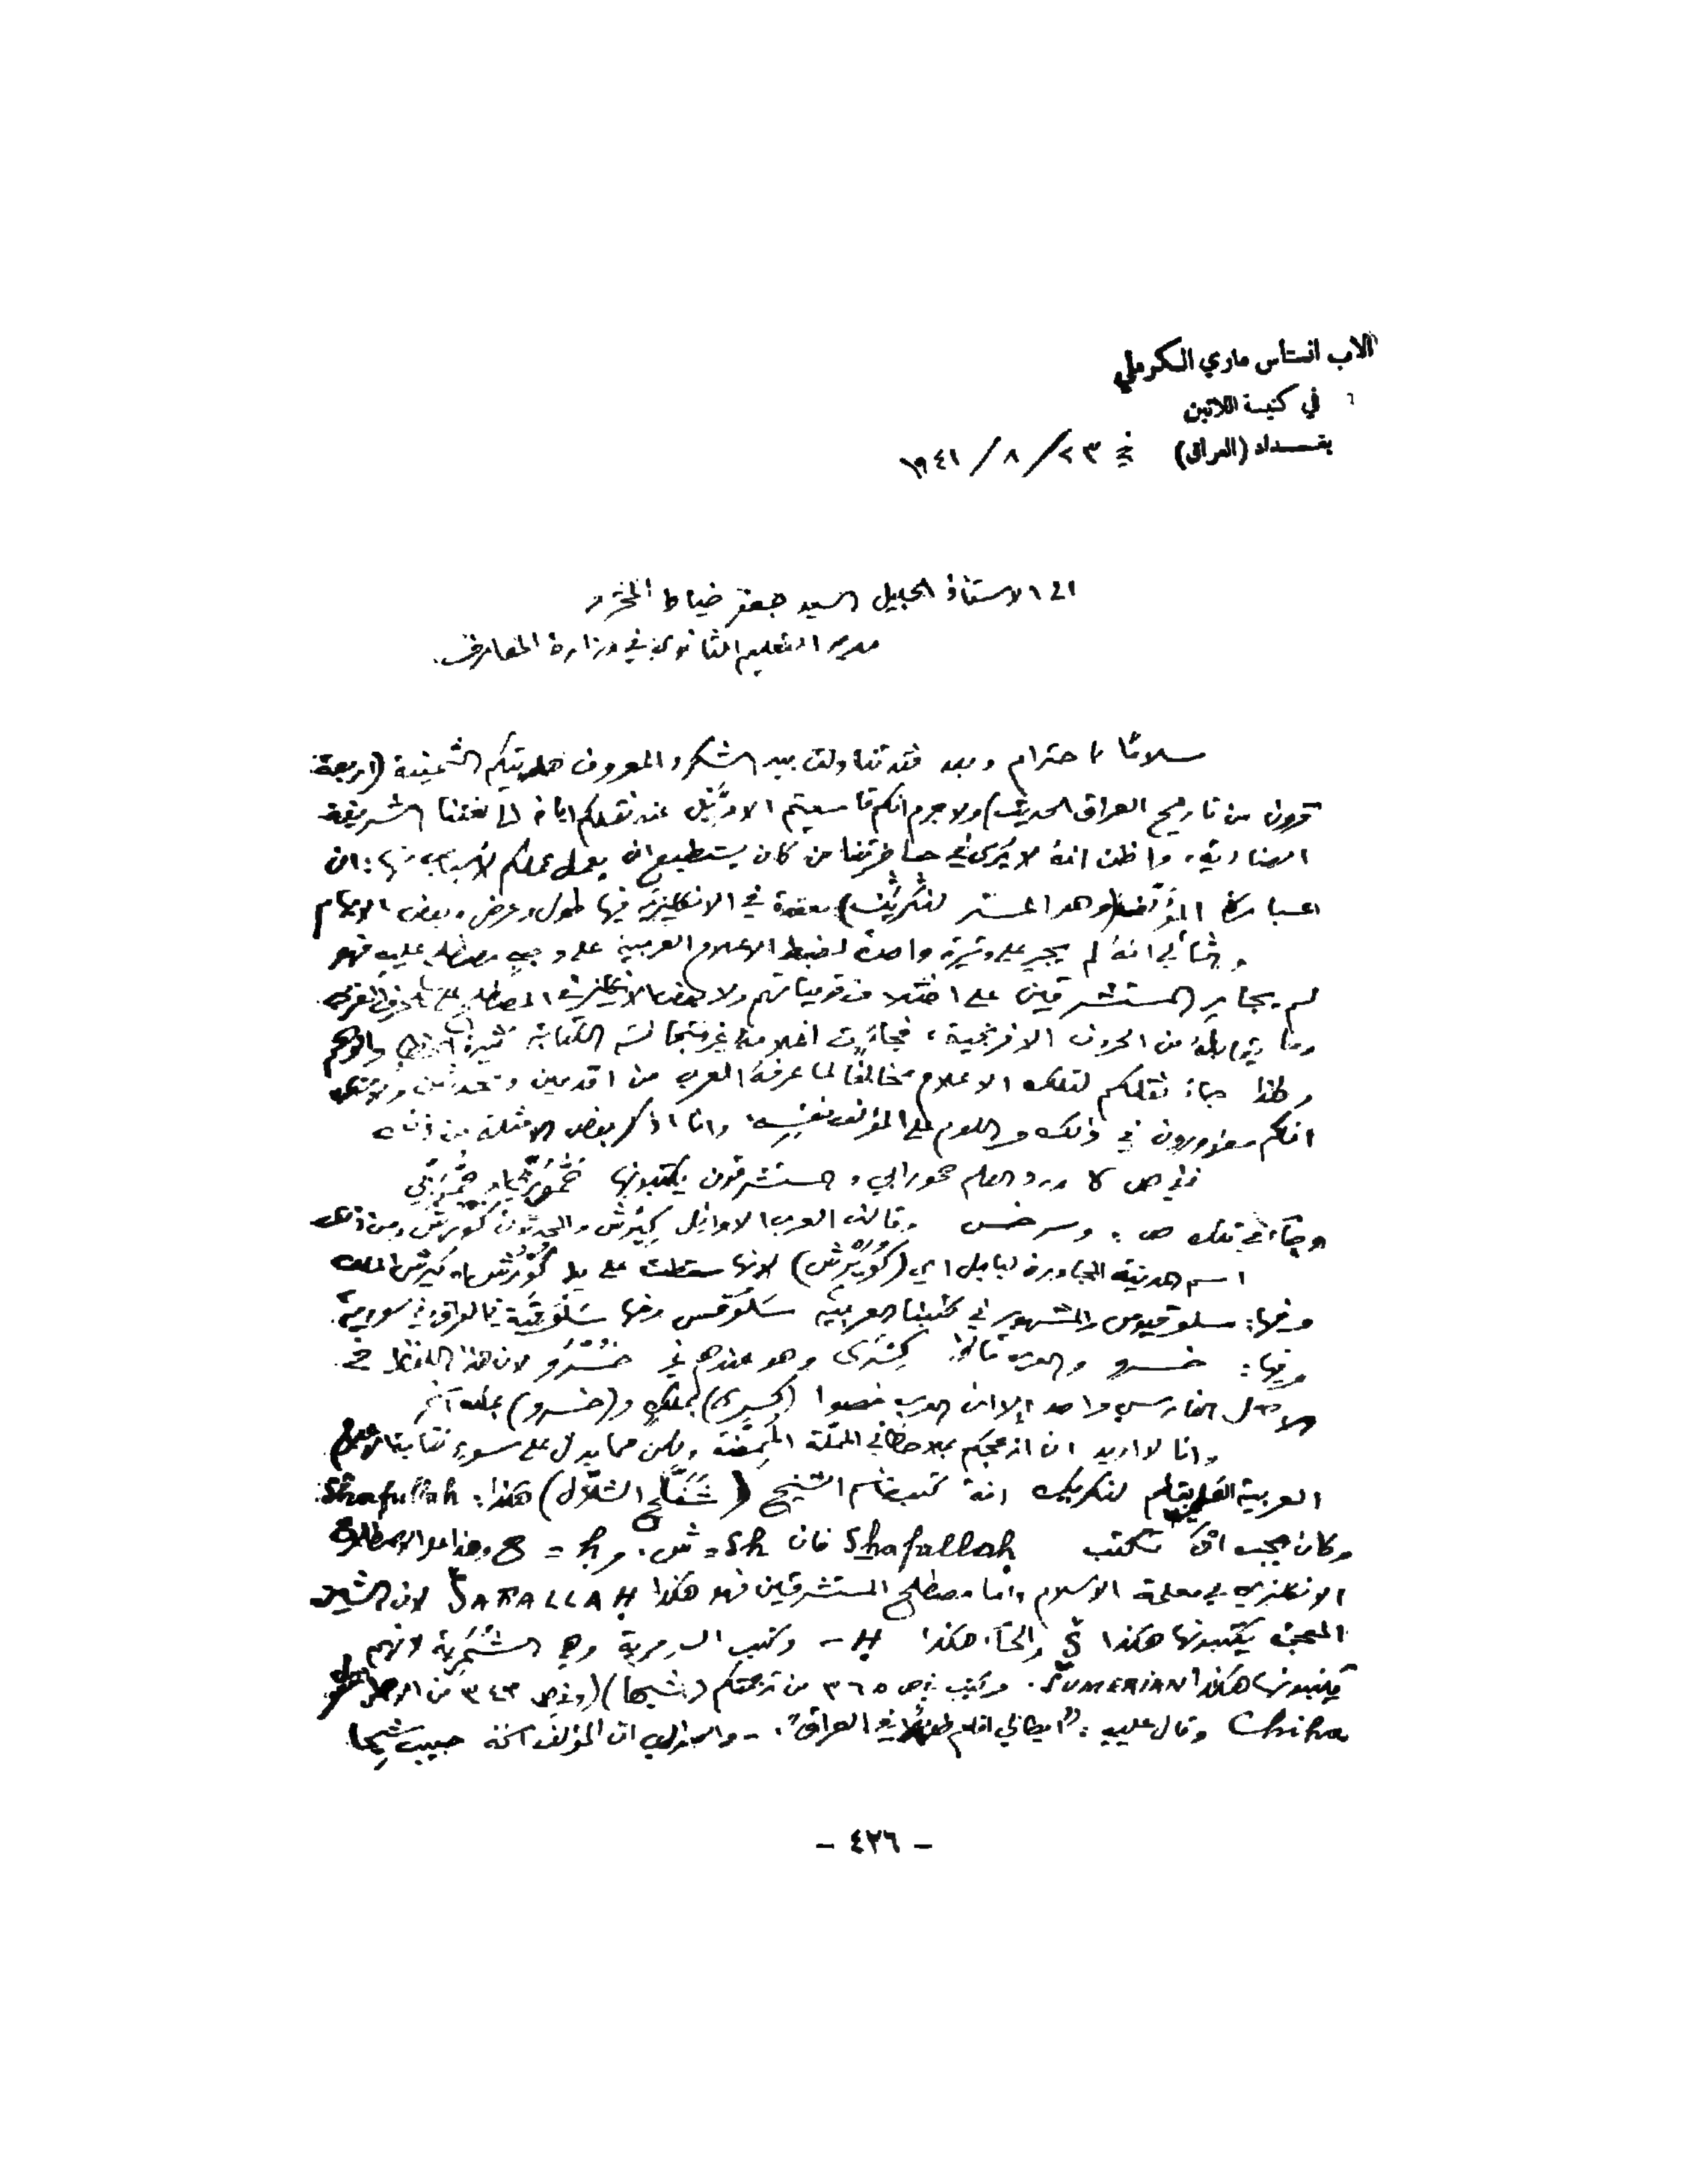 الاب انستاس ماري الكرملي
في كنيسة اللاتين
بغداد (العراق) في ٢٣/٨/١٩٤١
الى الاستاذ الجليل السيد جعفر خياط المحترم
مدير التعليم الثانوي في وزارة المعارف.
سلامًا واحترام وبعد فقد تناولت بيد الشكر والمعروف هديتكم الثمينة (اربعة
قرون من تاريخ العراق الحديث) ولا جرم انكم قاسيتم عند نقلكم اياه الى لغتنا الشريفة
الضادية، واظن انه لا يُرى في حاضرتنا من كان يستطيع ان يعمل عملكم لأسباب منها: ان
عبارة المؤلف (وهو المستر لنكريك) معقدة في الانكليزية فيها طول وعرض وبعض الابهام
والثاني انه لم يجرِ على وتيرة واحدة لضبط الاعلام العربية على وجهٍ مصطلح عليه فهو
لم يجارِ المستشرقين على اختلاف قومياتهم ولا الانكليز المصطلح
وما يقابله من الحروف الافرنجية، فجاءت اعلامه غير متجانسة الكتابة كثيرة والوهم
ولهذا جاء نقلكم لتلك الاعلام مخالفًا لما عرفه العرب من اقدمين ومحدثين
انكم معذورون في ذلك واللوم على المؤلف نفسه. وانا اذكر بعض الامثلة من ذلك
ففي ص ورد اسم حمورابي والمستشرقون يكتبونها
وجاء في تلك ص: وسرخس وقالت العرب الاوائل كيرش والمحدثون كورش ومن ذلك
اسم المدينة المجاورة لبابل اي لانها سقطت على يد كورش او كيرش الملك
وفيها: سلوقيوس والمشهور في كتبنا العربية سَلُوقس ومنها سَلُوقية في العراق وفي سورية
وفيها: خسرو والعرب قالوا كِسْرَى وهو عندهم غير خُسْرُو لان هذا اللفظ في
الاصل الفارسي واحد إلا ان العرب خصوا (كسرى) بملك و(خسرو) بملك آخر
وانا لا اريد ان ازعجكم بملاحظاتي المملة ولكن مما يدل على سوء كتابة الاعلام
العربية لنكريك انه كتب اسم الشيخ (شفلّح الشلّال) هكذا: Shafullah
وكان يجب ان تكتب Shafallaḥ فان Sh = ش. و ḥ = ح وهذا هو الاصطلاح
الانكليزي في معلمة الاسلام واما مصطلح المستشرقين فهو هكذا ŠAFALLAḤ لان الشين
المعجمة يكتبونها هكذا Š والحاء هكذا Ḥ - وكتب السومرية وهي الشُّمَرية لانهم
يكتبونها هكذا ŠUMERIAN. وكتب في ص ٣٦٥ من ترجمتكم (شيحا) (وفي ص ٣٤٣ من الاصل
Chiha وقال عليه: "ايطالي اقام طويلًا في العراق". - والصواب ان المؤلف اسمه حبيب شيحا
- ٤٢٦ -